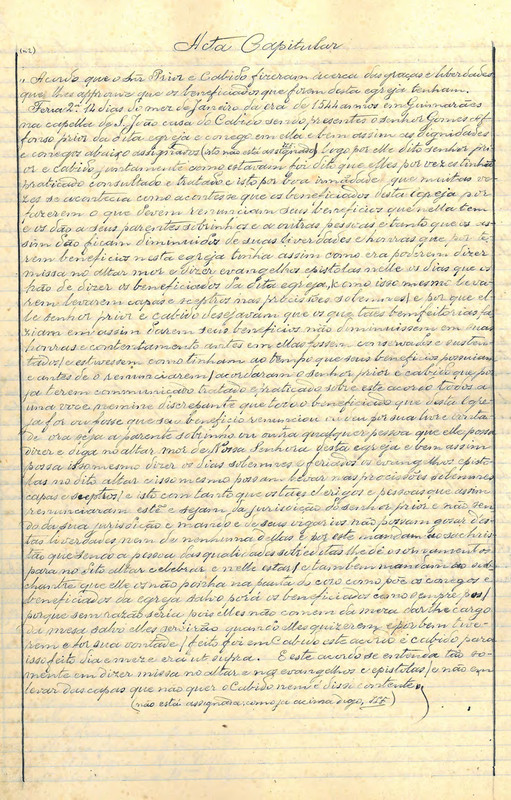 (42)
Acta Capitular
"Acordo que o Snr Prior e Cabido fizeram ácerca das graças e liberdades
que lhe approuve que os beneficiados que forem desta egreja tenham.
Feria 2ª 14 dias do mez de Janeiro da era de 1544 annos em Guimarães
na capella de S. João casa do Cabido sendo presentes o senhor Gomes Af-
fonso prior da dita egreja e conego em ella e bem assim as dignidades
e conegos abaixo assignados (isto não está assignado) logo por elle dito senhor pri-
or e Cabido juntamente como estavam foi dito que elles por vezes tinham
praticado consultado e tratado e isto por boa irmandade que muitas ve-
zes se acontecia como acontece que os beneficiados desta Egreja por
fazerem o que devem renunciam seus beneficios que nella tem
e os dão a seus parentes sobrinhos e a outras pessoas e tanto que os as-
sim dão ficam diminuidos de suas liverdades e honras que por te-
rem beneficios nesta egreja tinha assim como era poderem dizer
missa no altar mor e dizer evangelhos epistolas nelle os dias que os
hão de dizer os beneficiados da dita egreja, e como isso mesmo leva-
rem levarem capas e sceptros nas procissões solemnes/ e por que el-
le senhor prior e cabido desejavam que os que taes bemfeitorias fa-
ziam em assim darem seus beneficios não diminuissem em suas
honras e contentamento antes em ellas fossem conservados e susten-
tados/ e estivessem como tinham ao tempo que seus beneficios possuiam
e antes de o renunciarem/ acordaram o senhor prior e cabido que por
ja terem communicado tratado e praticado sobre este acordo todos a
uma voz e, nemine discrepante que todo o beneficiado que desta Egre-
ja for ou posse que seu beneficio renunciou ou deu por sua livre vonta-
de ora seja a parente sobrinho ou outra qualquer pessoa que elle possa
dizer e diga no altar mor de Nossa Senhora desta egreja e bem assim
possa isso mesmo dizer os dias solemnes e feriados os evangelhos episto-
las no dito altar e isso mesmo possam levar nas procissões solemnes
capas e sceptros/ e isto com tanto que os taes clerigos e pessoas que assim
renunciaram estê e sejam da jurisdição do senhor prior e não sen-
do da sua jurisdição e mando e de seus vigarios não possam gosar des-
tas liverdades nem de nenhuma dellas e por este mandam ao sachris-
tão que sendo a pessoa das qualidades sobreditas lhe dê os ornamentos
para no dito altar celebrar e nelle estar/ e tambem mandam ao sub-
chantre que elle os não ponha na pauta do coro como põe os conegos e
beneficiados da egreja salvo porá os beneficiados como sempre pos/
porque sem razão seria pois elles não comem da meza dar lhe cargo
da mesa salvo elles servirão quando elles quizerem e por bem tive-
rem e por sua vontade/ feito foi em Cabido este acordo e cabido, para
isso feito dia e mez e era ut supra. E este acordo se entenda tão so-
mente em dizer missa no altar e nos evangelhos e epistolas/ e não em
levar das capas que não quer o Cabido nem é disso contente.,
(não está assignada, como ja acima digo,